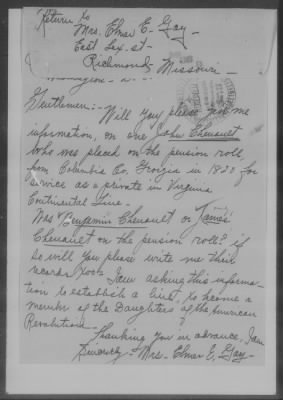 Return to
Mrs. Elmer E. Gay-
East Lex. st-
Richmond, Missouri-
Washington - D. C.
Gentlemen:- Will you please give me
information, on one John Chenault
who was placed on the pension roll,
from Columbia Co, Georgia in 1820 for
service as a private in Virginia
Continental Line-
Was Benjamin Chenault or James
Chenault on the pension roll? if
so will you please write me their
records. I am asking this informa-
tion to establish a line, to become a
member of the Daughters of the American
Revolution-
Thanking you in advance, I am
Sincerely- Mrs- Elmer E. Gay-